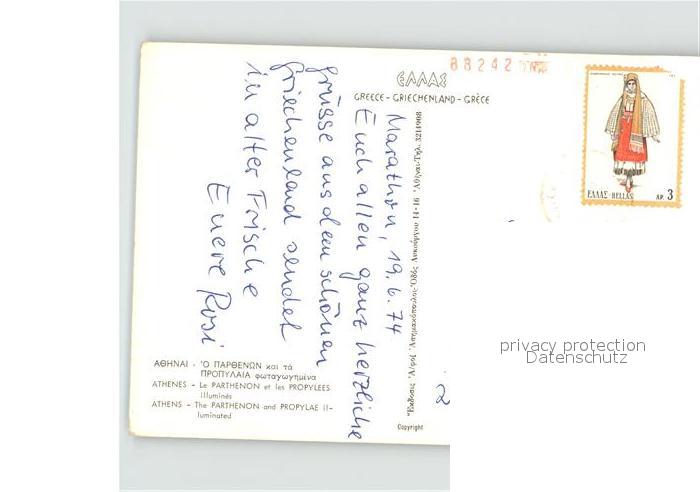 88242
ΕΛΛΑΣ
GREECE - GRIECHENLAND - GRÈCE
ΕΛΛΑΣ-HELLAS ΔΡ. 3
Marathon, 19.6.74
Euch allen ganz herzliche
Grüsse aus dem schönen
Griechenland sendet
in alter Frische
Euere Rosi
ΑΘΗΝΑΙ - Ὁ ΠΑΡΘΕΝΩΝ καὶ τὰ
ΠΡΟΠΥΛΑΙΑ φωταγωγημένα
ATHENES - Le PARTHENON et les PROPYLEES
Illuminés
ATHENS - The PARTHENON and PROPYLAE Il-
luminated
Copyright
2
privacy protection
Datenschutz